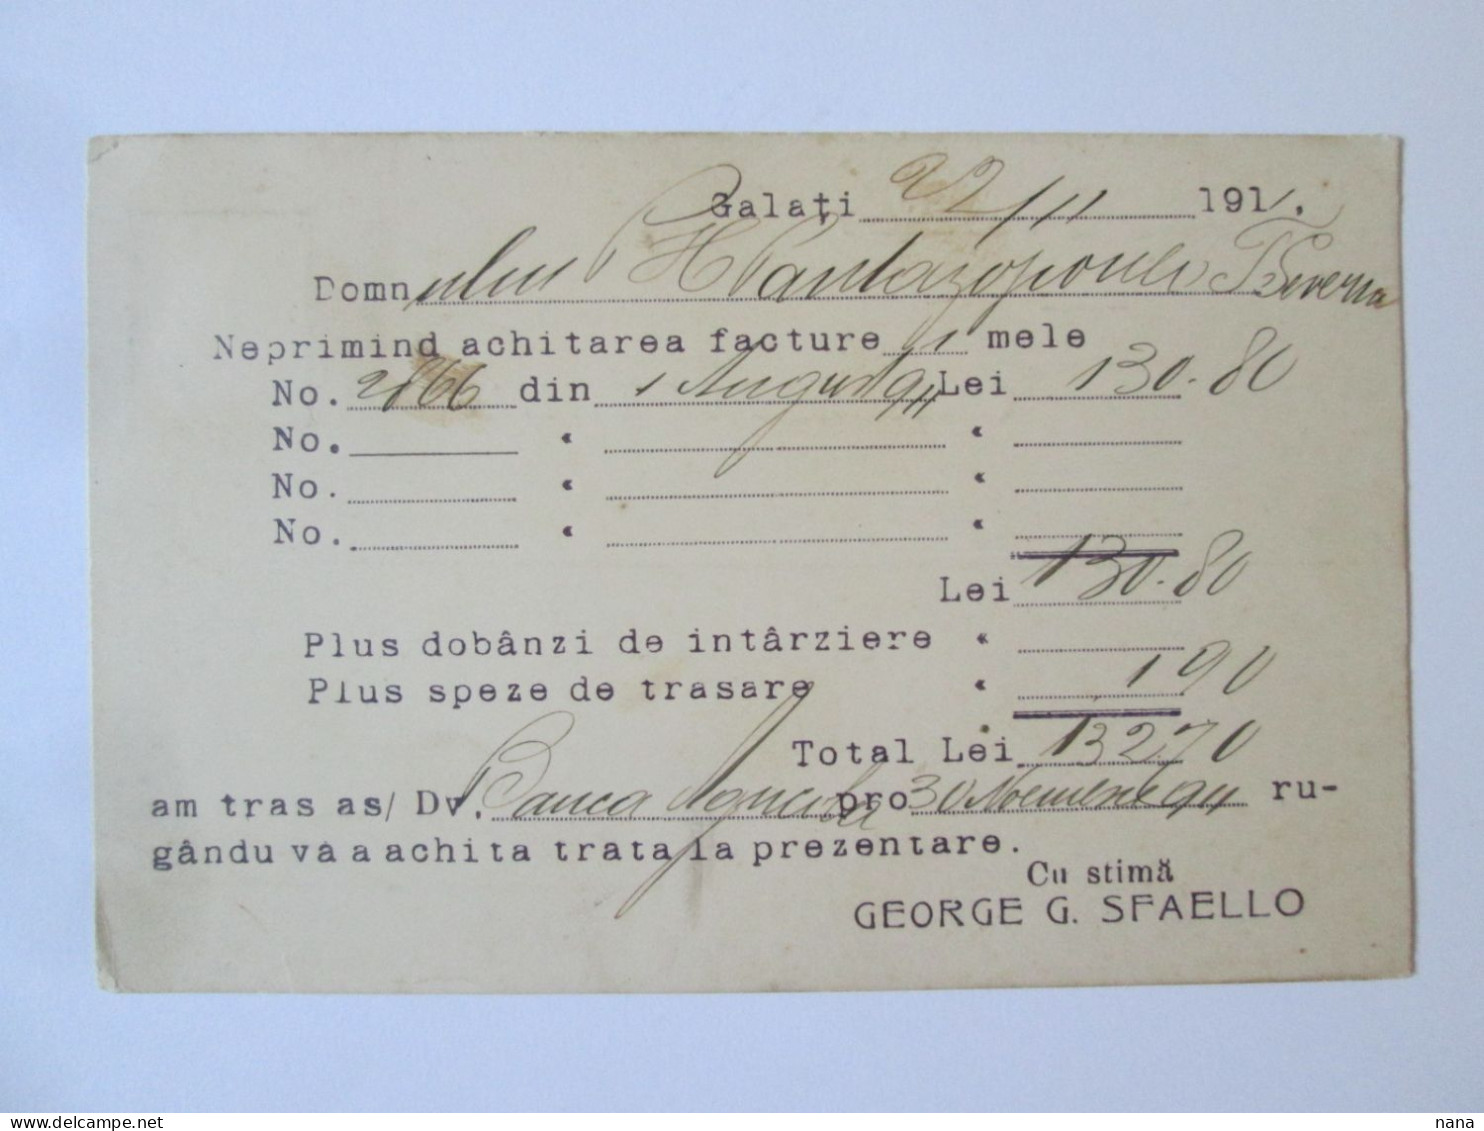 Galați 22/11 1911.
Domnului H Pantazopoulo
Neprimind achitarea facture 1 mele
No. 2866 din 1 August 911 Lei 130.80
No. " "
No. " "
No. " "
Lei 130.80
Plus dobânzi de intârziere "
Plus speze de trasare " 1 90
Total Lei 132.70
am tras as/ Dv. Banca Agricola pro 30 Noiembrie 911 ru-
gându va a achita trata la prezentare.
Cu stimă
GEORGE G. SFAELLO
nana
delcampe.net